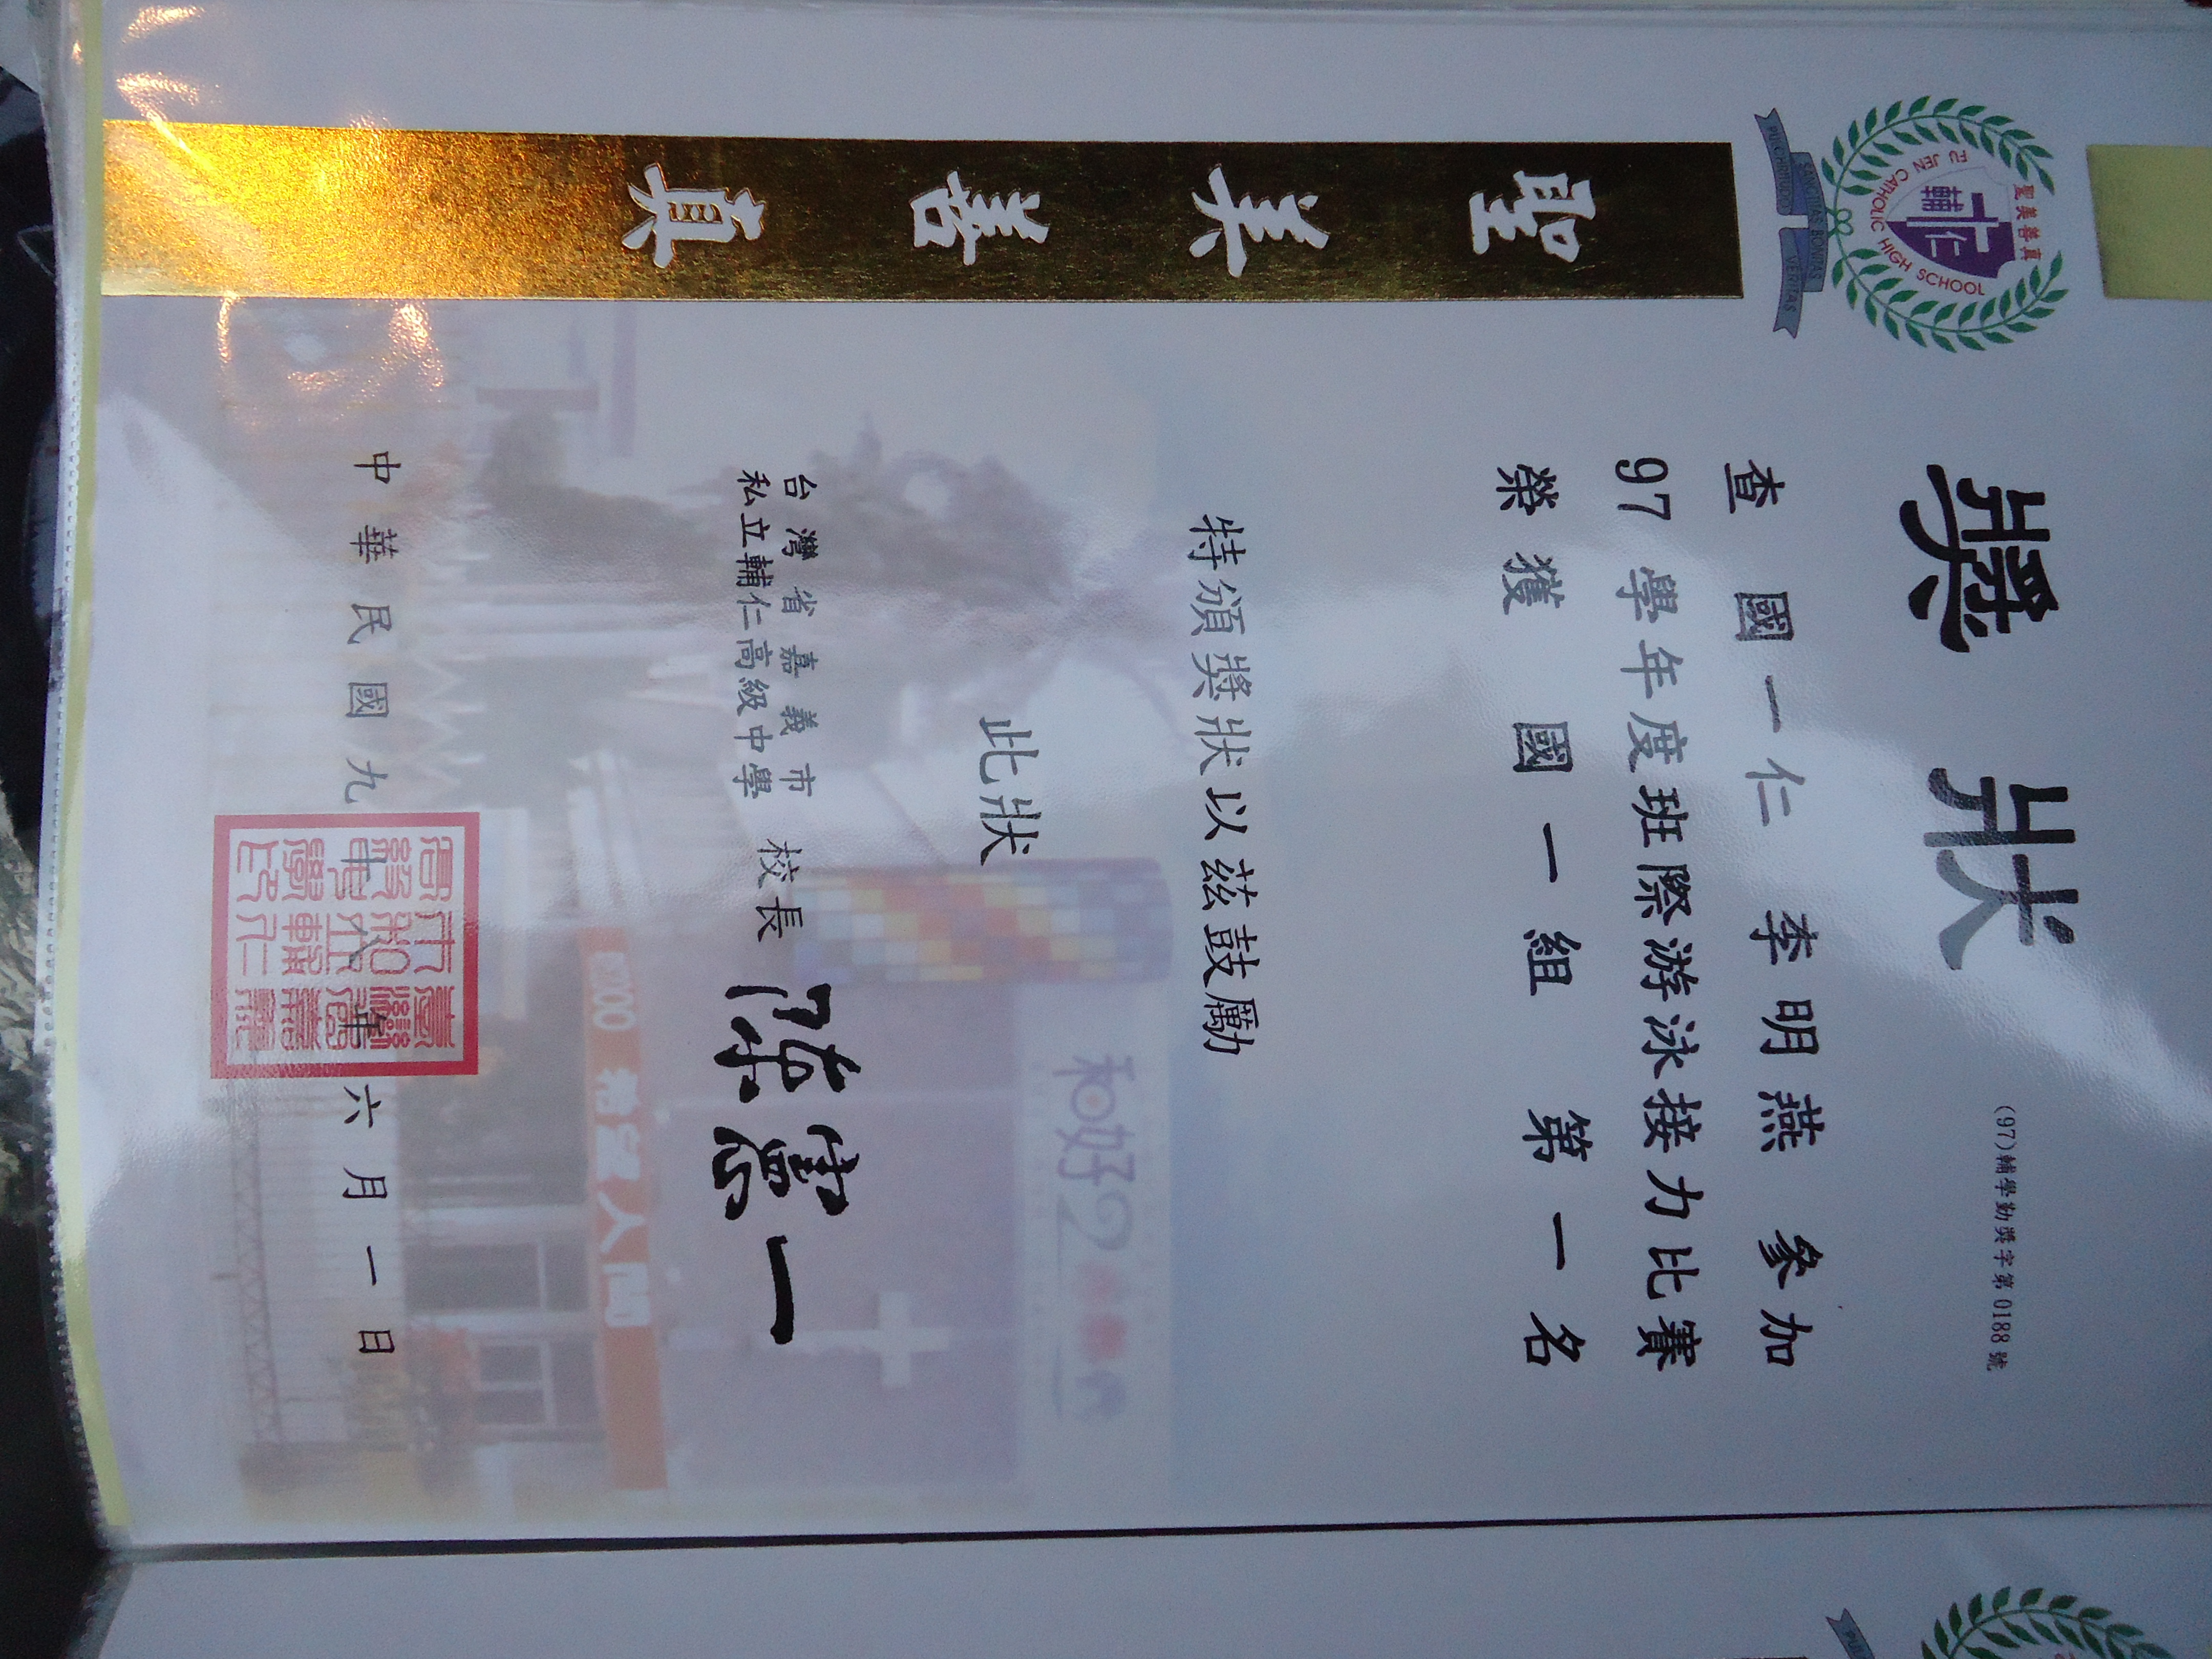 獎狀
(97)輔學勤獎字第0188號
查 國一仁 李明燕 參加
97 學年度班際游泳接力比賽
榮獲 國一組 第一名
特頒獎狀以茲鼓勵
此狀
台灣省嘉義市
私立輔仁高級中學
校長
中華民國九十八年六月一日
聖美善真
聖美善真
輔仁
FU JEN CATHOLIC HIGH SCHOOL
PULCHRITUDO
SANCTITAS BONITAS
VERITAS
和好